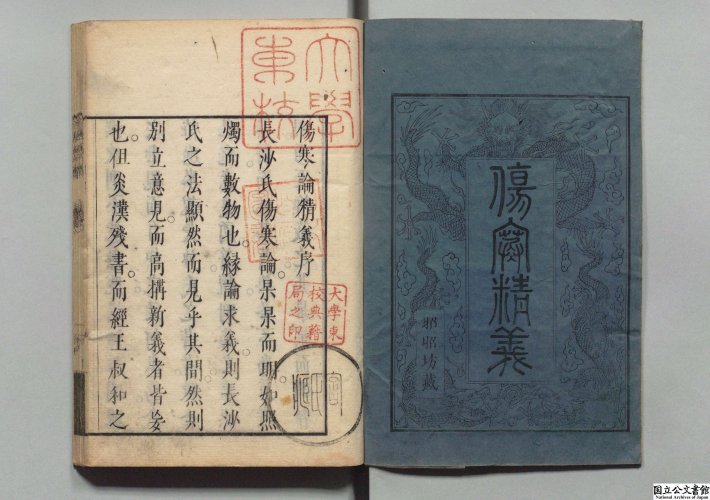 傷寒精義
昭昭坊藏
傷寒論精義序
長沙氏傷寒論。杲杲而明。如照
燭而數物也。緣論求義。則長沙
氏之法。顯然而見乎其間。然則
別立意見。而高搆新義者。皆妄
也。但炎漢殘書。而經王叔和之
大學東校
大學東
校典籍
局之印
国立公文書館
National Archives of Japan